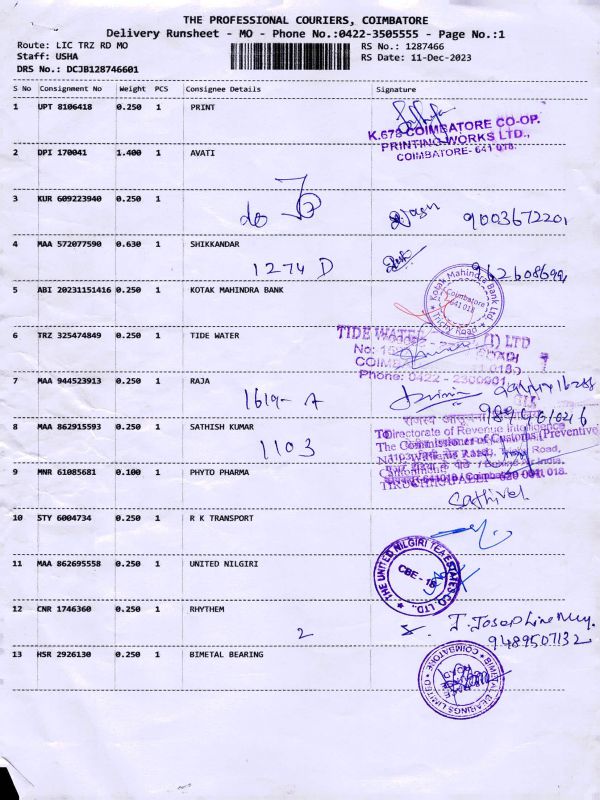 THE PROFESSIONAL COURIERS, COIMBATORE
Delivery Runsheet - MO - Phone No.:0422-3505555 - Page No.:1
Route: LIC TRZ RD MO
RS No.: 1287466
Staff: USHA
RS Date: 11-Dec-2023
DRS No.: DCJB128746601
S No Consignment No Weight PCS Consignee Details Signature
1 UPT 8106418 0.250 1 PRINT
K.678 COIMBATORE CO-OP.
PRINTING WORKS LTD.,
COIMBATORE- 641 018.
2 DPI 170041 1.400 1 AVATI
3 KUR 609223940 0.250 1
do
9003672201
4 MAA 572077590 0.630 1 SHIKKANDAR
1274 D
5 ABI 20231151416 0.250 1 KOTAK MAHINDRA BANK
Kotak Mahindra Bank Ltd.
Coimbatore
641 018
Trichy Road
6 TRZ 325474849 0.250 1 TIDE WATER
TIDE WATER (I) LTD
Phone: 0422 - 2300901
7 MAA 944523913 0.250 1 RAJA
1619- A
8 MAA 862915593 0.250 1 SATHISH KUMAR
1103
Directorate of Revenue Intelligence
The Commissioner of Customs (Preventive)
9 MNR 61085681 0.100 1 PHYTO PHARMA
Sathivel
10 STY 6004734 0.250 1 R K TRANSPORT
11 MAA 862695558 0.250 1 UNITED NILGIRI
THE UNITED NILGIRI TEA ESTATES CO. LTD.
CBE - 18
12 CNR 1746360 0.250 1 RHYTHEM
2
9489507132
13 HSR 2926130 0.250 1 BIMETAL BEARING
BIMETAL BEARINGS LIMITED
COIMBATORE